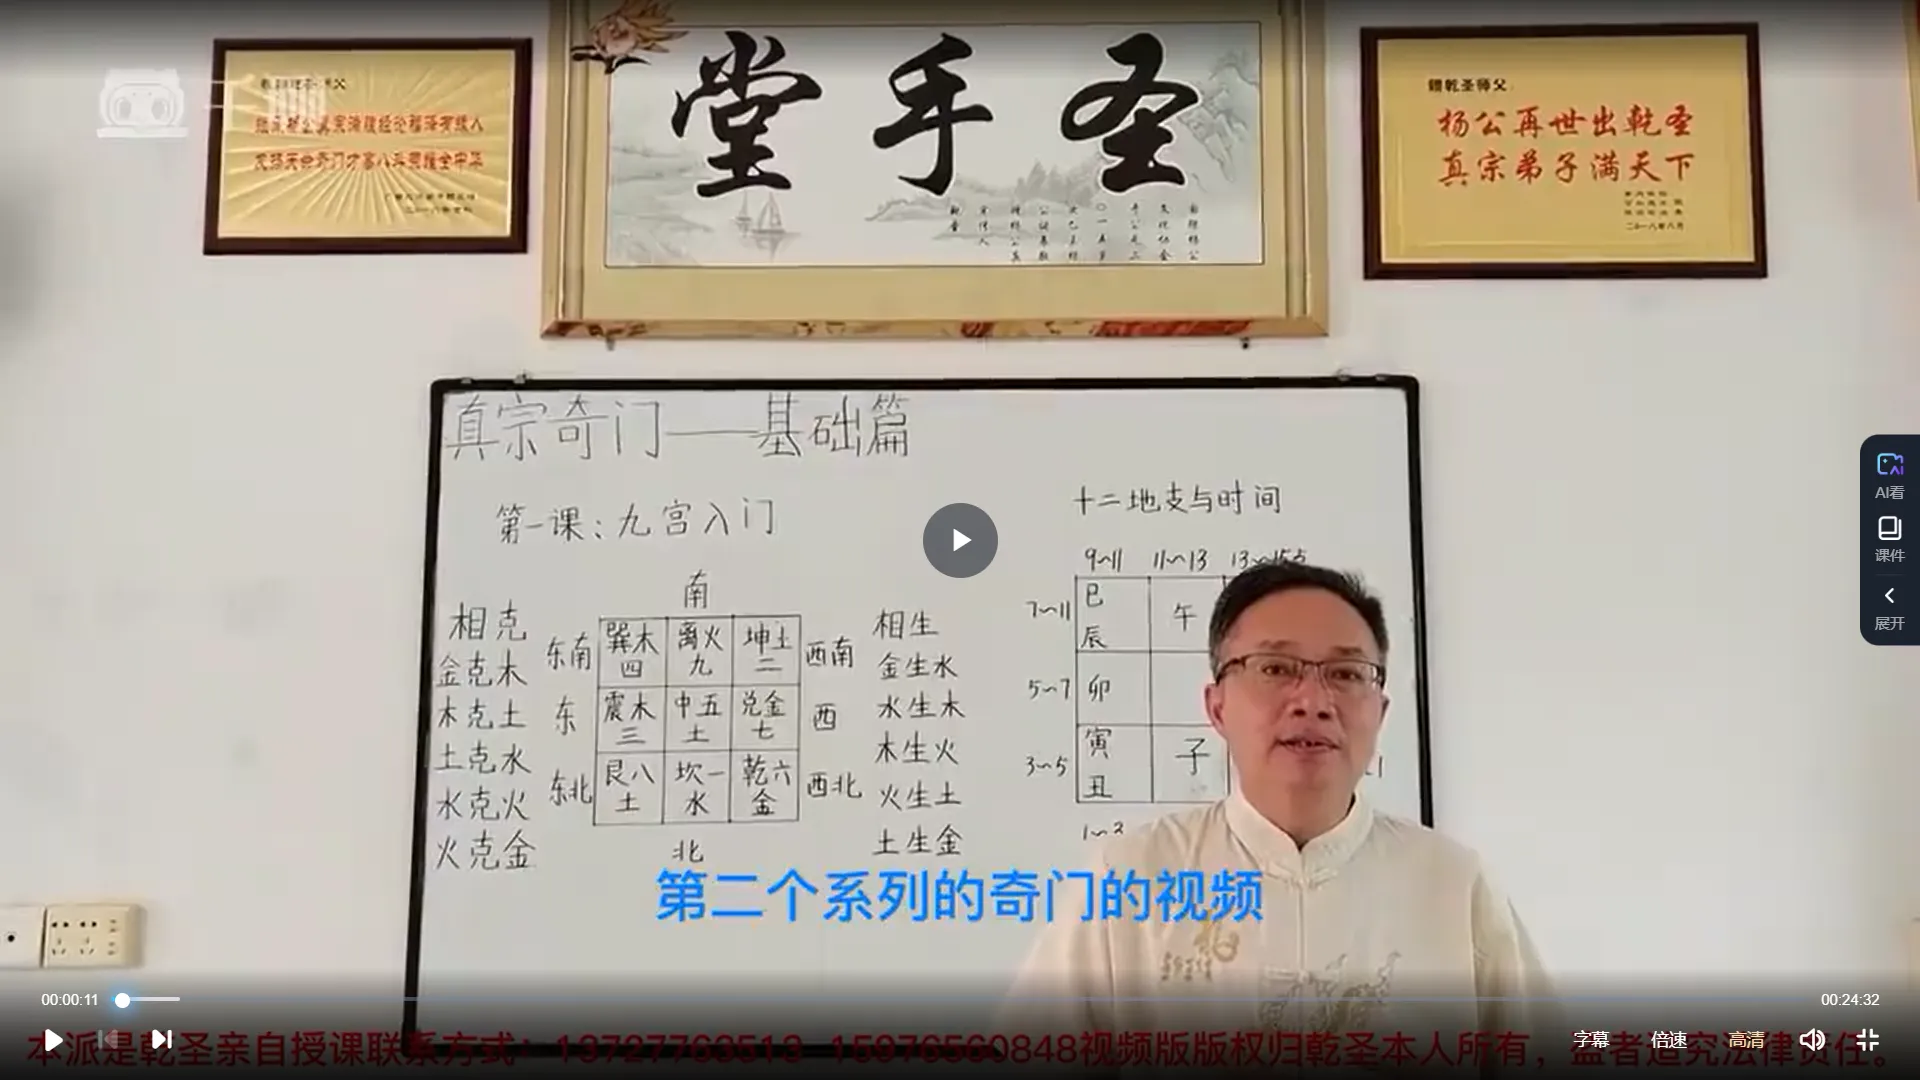 堂手圣
赠乾圣师父
杨公再世出乾圣
真宗弟子满天下
二〇一八年八月
真宗奇门——基础篇
第一课：九宫入门
十二地支与时间
南
9~11 11~13 13~15点
相克
金克木
木克土
土克水
水克火
火克金
东南 巽木四 离火九 坤土二 西南
东 震木三 中五土 兑金七 西
东北 艮八土 坎一水 乾六金 西北
北
相生
金生水
水生木
木生火
火生土
土生金
7~11 巳 午
辰
5~7 卯
3~5 寅 子
丑
第二个系列的奇门的视频
AI看
课件
展开
00:00:11
00:24:32
字幕 倍速 高清
本派是乾圣亲自授课联系方式：13727763513 15976560848视频版版权归乾圣本人所有，盗者追究法律责任。